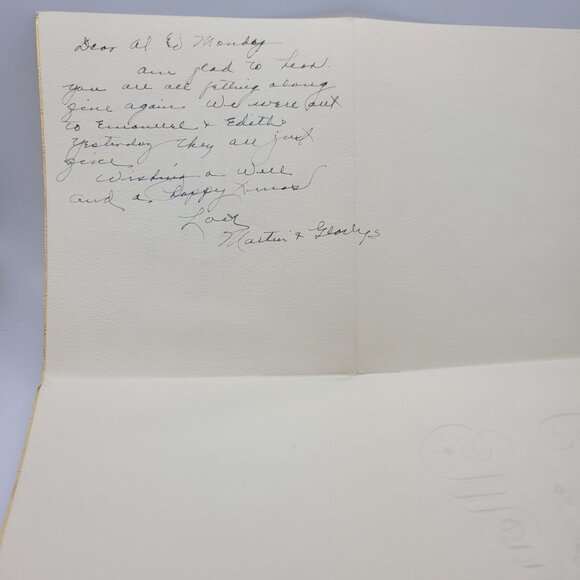 Dear Al Ed Monday
am glad to hear
you are all getting along
fine again. We were out
to Emanuel & Edith
Yesterday they are just
fine
Wishing a Well
and a happy Xmas
Love
Martin & Gladys